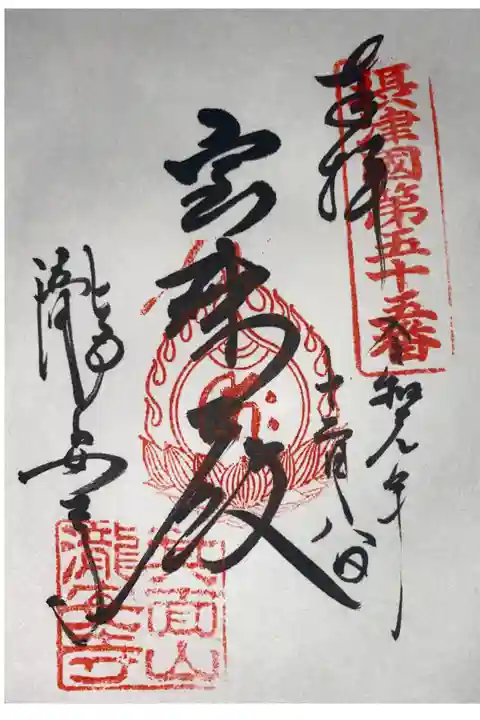 摂津國第五十五番
奉拝
令和元年
十二月八日
宝珠殿
瀧安寺
箕面山
瀧安寺